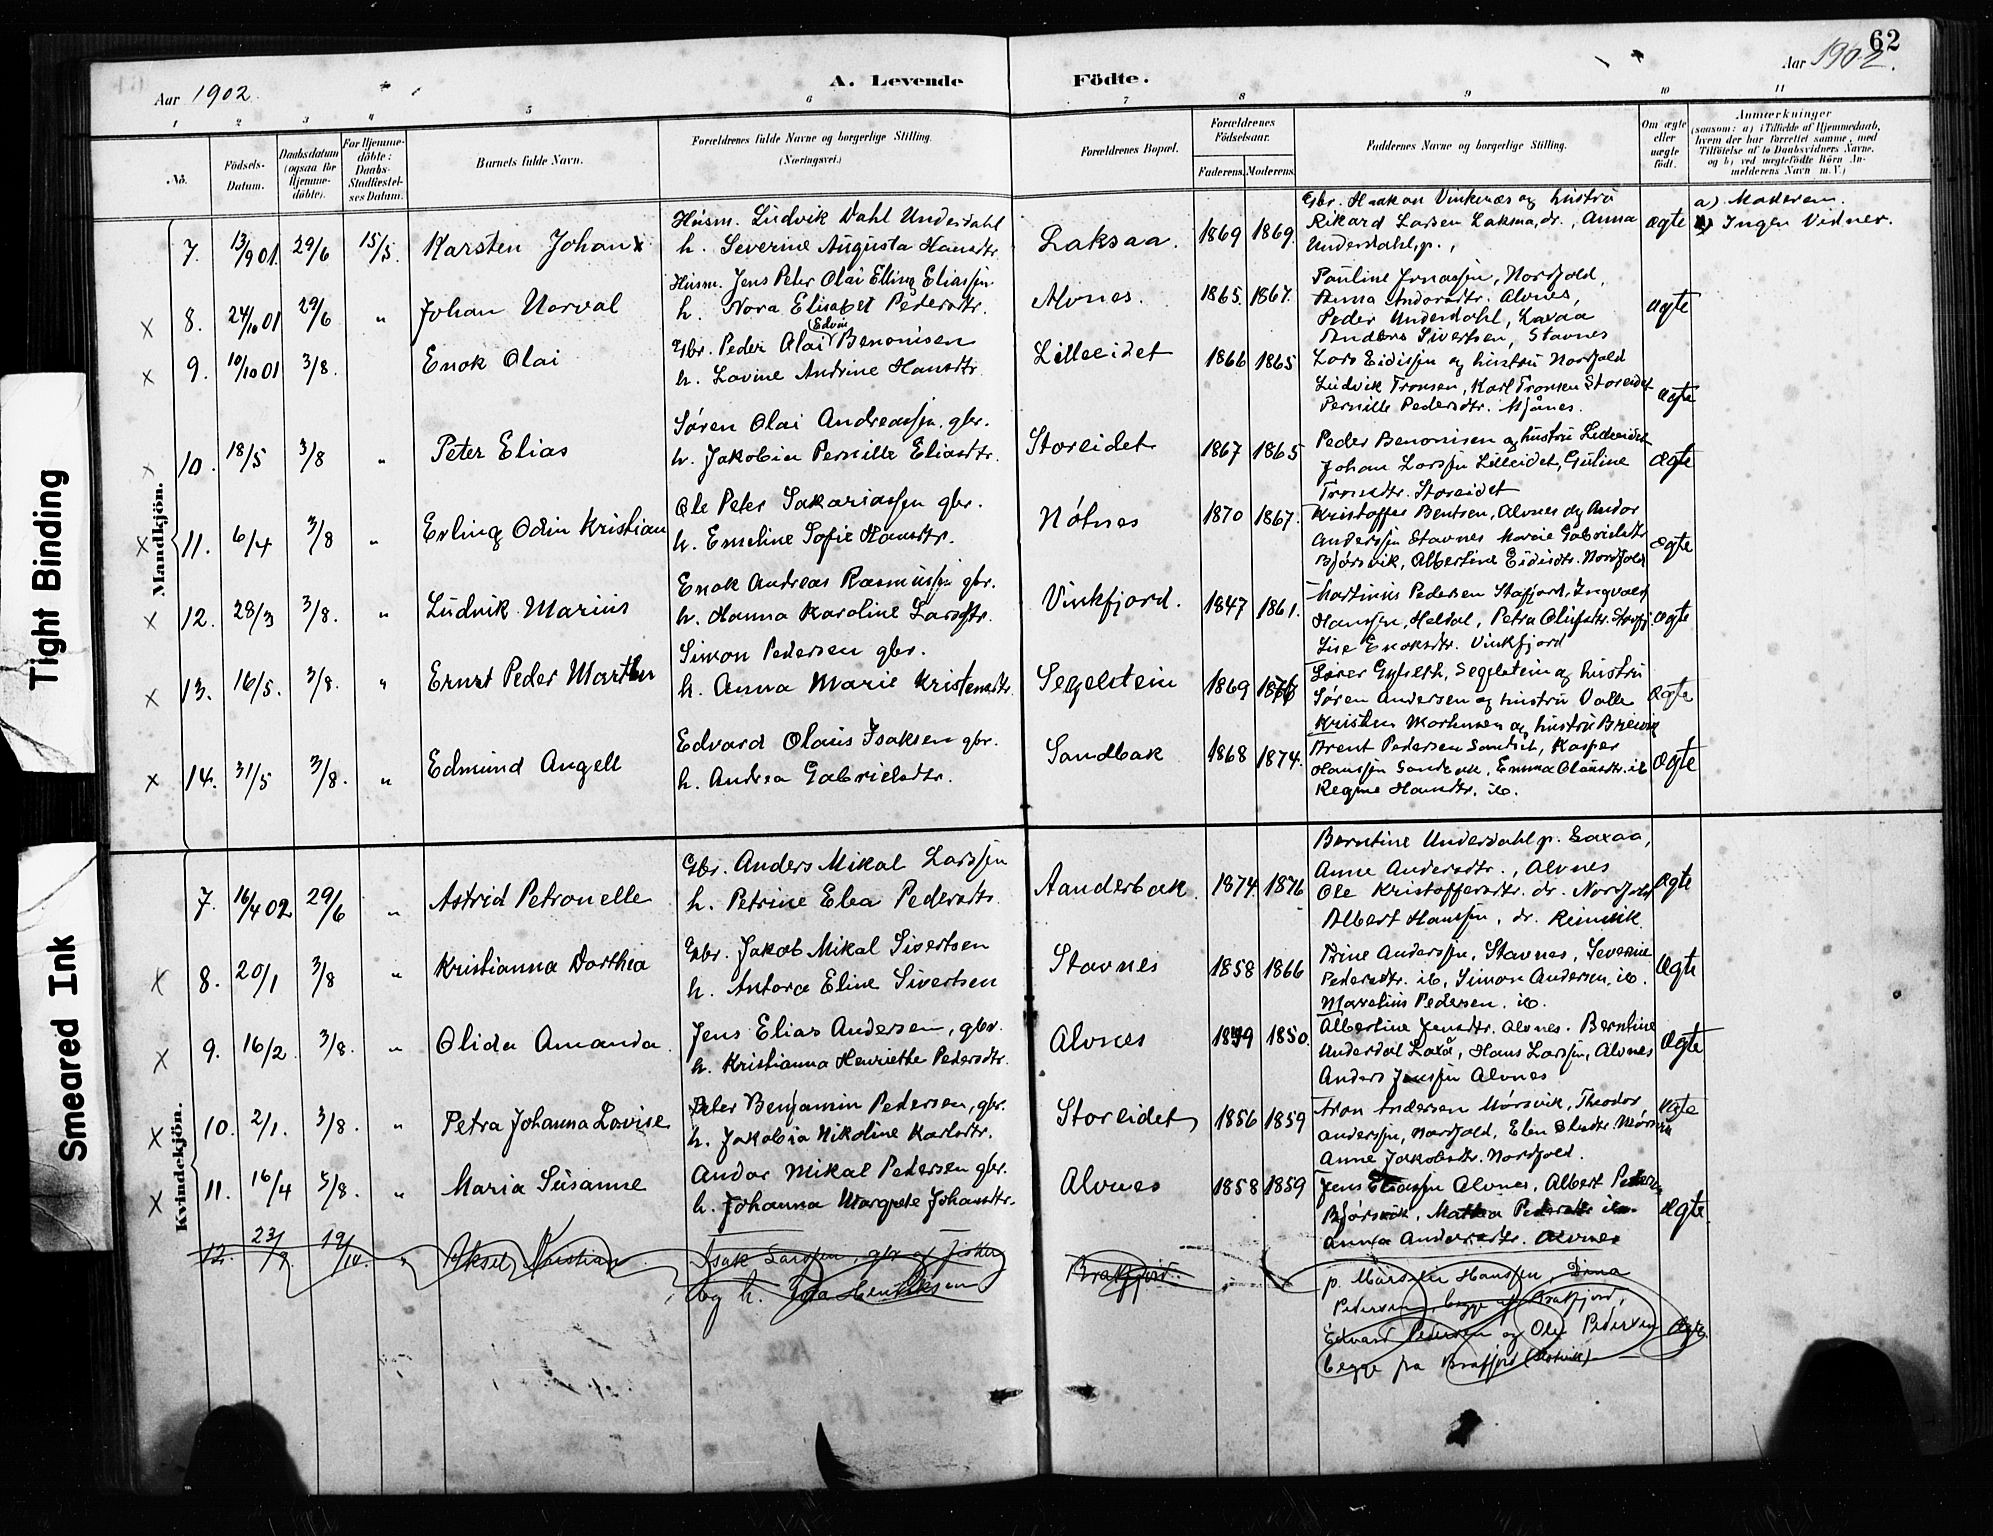 62
Aar 1902.
A. Levende Födte.
Aar 1902.
1 2 3 4 5 6 7 8 9 10 11
No.
Födsels-Datum.
Daabsdatum (ogsaa for Hjemmedöbte).
For Hjemmedöbte: Daabs-Stadfestelses Datum.
Barnets fulde Navn.
Forældrenes fulde Navne og borgerlige Stilling. (Næringsvei.)
Forældrenes Bopæl.
Forældrenes Födselsaar.
Faderens. Moderens.
Faddernes Navne og borgerlige Stilling.
Om ægte eller uægte født.
Anmærkninger
(saasom: a) i Tilfælde af Hjemmedaab, hvem der har forrettet samme, med Tilføielse af to Daabsvidners Navne, og b) ved uægtefödte Börn Anmelderens Navn m. V.)
Mandkjön.
7. 13/9 01. 29/6 15/5. Karsten Johan
Husm. Ludvik Dahl Underdahl
h. Severine Augusta Hansdtr.
Laksaa. 1869 1869.
Gbr. Haakon Vinkenæs og hustru
Rikard Larsen Laksaa, dr., Anna
Underdahl, p.,
ægte
a) Moderen.
b) Ingen Vidner.
X 8. 24/10 01 29/6 " Johan Norval
Husm. Jens Peter Olai Elling Eliassen
h. Nora Elisabet Pedersdtr.
Alvnes. 1865. 1867.
Pauline Jonassen, Nordfold,
Anna Andorsdtr. Alvnes,
Peder Underdahl, Laxaa
Anders Sivertsen, Stavnes
ægte
X 9. 10/10 01 3/8. Enok Olai
Gbr. Peder Olai Edvin Benonisen
h. Lovine Andrine Hansdtr.
Lilleeidet 1866 1865
Lars Eidissen og hustru Nordfold
Ludvik Tronsen, Karl Tronsen Storeidet
Pernille Pedersdtr. Mjånes.
ægte
X 10. 18/5 3/8 " Peter Elias
Søren Olai Andreassen, gbr.
h. Jakobia Pernille Eliasdtr.
Storeidet 1867 1865
Peder Benonisen og hustru Lilleeidet
Johan Larssen Lilleidet, Guline
Tronsdtr. Storeidet
ægte
X 11. 6/4 3/8 " Erling Odin Kristian
Ole Peter Sakariassen gbr.
h. Emeline Sofie Hansdtr.
Nótnes 1870 1867.
Kristoffer Bentsen, Alvnes og Andor
Anderssen Stavnes Marie Gabrielsdtr
Bjørsvik, Albertine Eidisdtr. Nordfold
ægte
X 12. 28/3 3/8. " Ludvik Marius
Enok Andreas Rasmussen gbr.
h. Hanna Karoline Larsdtr.
Vinkfjord. 1847 1861.
Martinus Pedersen Stafjord, Ingvald
Hanssen, Heldal, Petra Olufsdtr.
Lise Enoksdtr. Vinkfjord
ægte
X 13. 16/5. 3/8. " Ernst Peder Marthin
Simon Pedersen gbr.
h. Anna Marie Kristensdtr.
Segelstein 1869
Segelstein og hustru
Søren Andersen og hustru Valle
Kristen Mortensen og hustru Breivik
ægte
X 14. 31/5 3/8. " Edmund Angell
Edvard Olaus Isaksen gbr.
h. Andrea Gabrielsdtr.
Sandbak 1868 1874.
Brent Pedersen Kasper
Hanssen Sandbak, Emma Olausdtr. ib
Regine Hansdtr. ib.
ægte
Kvindekjön.
7. 16/4 02 29/6 " Astrid Petronelle
Gbr. Anders Mikal Larssen
h. Petrine Elea Pedersdtr.
Aanderbak 1874 1876
Berntine Underdahl p. Laxaa,
Anne Andersdtr., Alvnes
Ole Kristoffersdtr. dr. Nordfold
Albert Hanssen, dr. Reinvik
ægte
X 8. 20/1 3/8 " Kristianna Dorthea
Gbr. Jakob Mikal Sivertsen
h. Antora Eline Sivertsen
Stavnes 1858 1866
Trine Anderssen, Stavnes, Severine
Pedersdtr. ib, Simon Andersen, ib.
Marelius Pedersen, ib.
ægte
X 9. 16/2. 3/8. " Olida Amanda
Jens Elias Andersen, gbr.
h. Kristianna Henriette Pedersdtr.
Alvnes 1849 1850.
Albertine Jensdtr. Alvnes. Berntine
Underdal Laxå, Hans Larssen, Alvnes
Anders Jenssen Alvnes
ægte
X 10. 2/1. 3/8. " Petra Johanna Lovise
Peter Benjamin Pedersen, gbr.
h. Jakobia Nikoline Karlsdtr.
Storeidet 1856 1859
Aron Andersen Mørsvik, Theodor
Anderssen, Nordfold, Elen Mørsvik
Anne Jakobsdtr. Nordfold.
ægte
X 11. 16/4 3/8. " Maria Susanne
Andor Mikal Pedersen gbr.
h. Johanna Margrete Johansdtr.
Alvnes 1858 1859
Jens Eliassen Alvnes, Albert Pedersen
Bjørsvik, Mathea Pedersdtr ib.
Anna Andersdtr. Alvnes
ægte
12. 23/7 19/10. " Aksel Kristian
Isak Larssen, gbr og fisker
og h. Ida Henriksen
Brakfjord.
p. Hanssen, Dina
Pedersen, begge af Brakfjord,
Edvard Pedersen og Ole Pedersen
begge fra Brafjord
ægte
Tight Binding
Smeared Ink